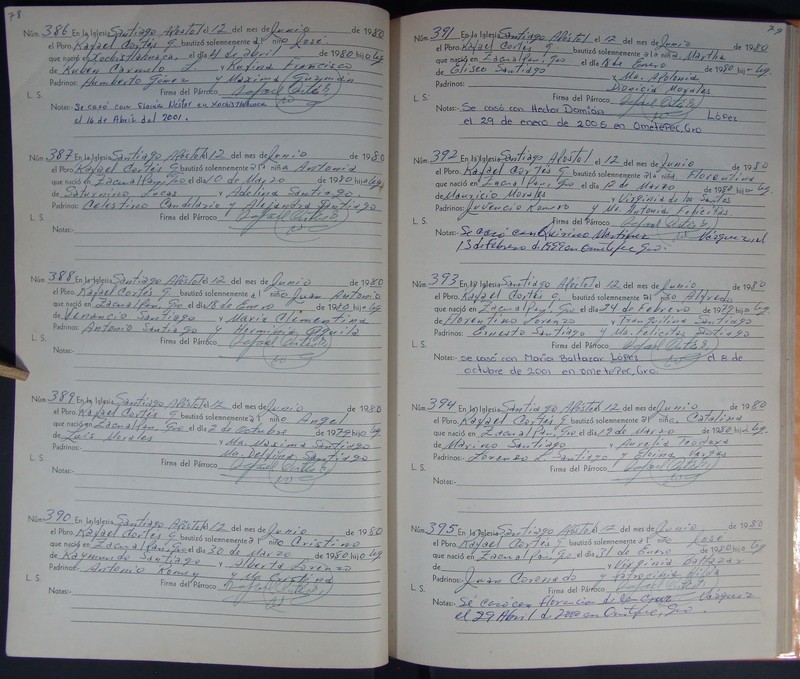 78
Núm. 386 En la Iglesia Santiago Apóstol el 12 del mes de Junio de 1980
el Pbro. Rafael Cortés G. bautizó solemnemente a l niño José.
que nació en Xochistlahuaca. el día 21 de abril de 1980 hijo leg.
de Rubén Carmelo L y Rufina Francisco
Padrinos: Humberto Gómez y Maxima Guzmán
L. S. Firma del Párroco
Notas: Se casó con Gloria Néstor en Xochistlahuaca
el 16 de Abril del 2001.
Núm. 387 En la Iglesia Santiago Apóstol 12 del mes de Junio de 1980
el Pbro. Rafael Cortés G bautizó solemnemente a la niña Antonia
que nació en Zacualpan, Gro el día 10 de Marzo de 1980 hija leg.
de Saturnino Lucas y Adelina Santiago.
Padrinos: Celestino Candelario y Alejandra Santiago
Firma del Párroco
L. S.
Notas:
Núm. 388 En la Iglesia Santiago Apóstol 12 del mes de Junio de 1980
el Pbro. Rafael Cortés G bautizó solemnemente a l niño Juan Antonio
que nació en Zacualpan, Gro el día 18 de Enero de 1980 hijo leg.
de Venancio Santiago y Maria Clementina
Padrinos: Antonio Santiago y Herminia
Firma del Párroco
L. S.
Notas:
Núm. 389 En la Iglesia Santiago Apóstol el 12 del mes de Junio de 1980
el Pbro. Rafael Cortés G bautizó solemnemente a l niño Angel
que nació en Zacualpan, Gro el día 2 de Octubre de 1979 hijo leg.
de Luis Morales y Ma. Maxima Santiago
Padrinos: Ma. Delfina Santiago
Firma del Párroco
L. S.
Notas:
Núm. 390 En la Iglesia Santiago Apóstol 12 del mes de Junio de 1980
el Pbro. Rafael Cortés G bautizó solemnemente a l niño Cristino
que nació en Zacualpan, Gro el día 30 de Marzo de 1980 hijo leg
de Raymundo Santiago y Alberta Lorenzo
Padrinos: Antonio y Ma Cristina
Firma del Párroco
L. S.
Notas:
79
Núm. 391 En la Iglesia Santiago Apóstol el 12 del mes de Junio de 1980
el Pbro. Rafael Cortés G. bautizó solemnemente a la niña. Martha
que nació en Zacualpan, Gro el día 18 de Enero de 1980 hija leg.
de Eliseo Santiago y Ma. Apolonia
Padrinos: Dionicia Morales
Firma del Párroco
L. S.
Notas: Se casó con Hector Domión López
el 29 de enero de 2006 en Ometepec, Gro
Núm. 392 En la Iglesia Santiago Apóstol el 12 del mes de Junio de 1980
el Pbro. Rafael Cortés G. bautizó solemnemente a la niña. Florentina
que nació en Zacualpan, Gro. el día 12 de Marzo de 1980 hija leg.
de Mauricio Morales y Virginia de los Santos
Padrinos: Juvencio Romero y Ma. Antonia Felicitas.
Firma del Párroco
L. S.
Notas: Se casó con Quirino Martínez Vázquez el
13 de febrero de 1999 en Ometepec Gro.
Núm. 393 En la Iglesia Santiago Apóstol 12 del mes de Junio de 1980
el Pbro. Rafael Cortés G. bautizó solemnemente a l niño Alfredo
que nació en Zacualpan, Gro el día 24 de Febrero de 1979 hijo leg.
de Florentino Lorenzo y Tranquilina Santiago
Padrinos: Ernesto Santiago y Ma. Felicitas Santiago
Firma del Párroco
L. S.
Notas: se casó con María Baltazar López el 8 de
octubre de 2001 en Ometepec, Gro.
Núm. 394 En la Iglesia Santiago Apóstol 12 del mes de Junio de 1980
el Pbro. Rafael Cortés G bautizó solemnemente a niña. Catalina
que nació en Zacualpan, Gro, el día 19 de Marzo de 1980 hija leg.
de Maximo Santiago y Aurelia Teodora
Padrinos: Lorenzo L Santiago y Eloina Vargas
Firma del Párroco
L. S.
Notas:
Núm. 395 En la Iglesia Santiago Apóstol 12 del mes de Junio de 1980
el Pbro. Rafael Cortés G bautizó solemnemente a l niño José
que nació en Zacualpan, Gro el día 31 de Enero de 1980 hijo leg.
de y Virginia Baltazar
Padrinos: Juan Coronado y Patrocinia
Firma del Párroco
L. S.
Notas: Se casó con Florencia de la Cruz Vázquez
el 29 Abril de 2000 en Ometepec, Gro.